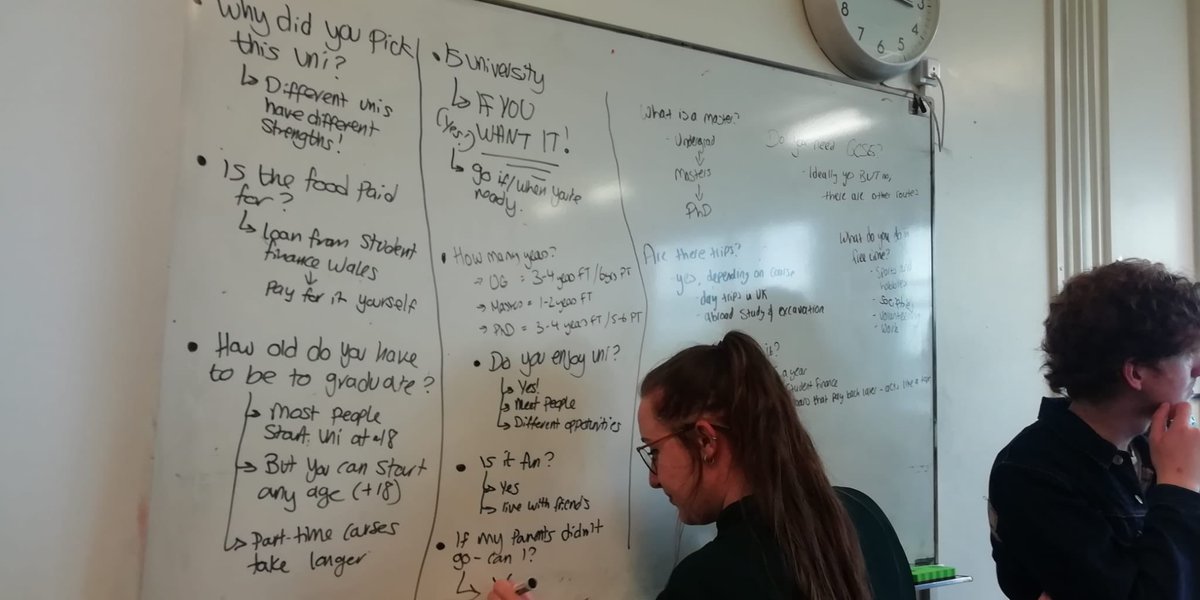 • Why did you pick
this uni?
↳ Different unis
have different
strengths!
• Is the food paid
for?
↳ Loan from student
finance Wales
↓
Pay for it yourself
• How old do you have
to be to graduate?
↳ Most people
start uni at ~18
↳ But you can start
any age (+18)
↳ Part-time courses
take longer
• Is university
↳ IF YOU
(Yes!) WANT IT!
↳ go if/when you're
ready.
• How many years?
→ UG = 3-4 years FT / 6yrs PT
→ Masters = 1-2 years FT
→ PhD = 3-4 years FT / 5-6 PT
• Do you enjoy uni?
↳ Yes!
↳ Meet people
↳ Different opportunities
• Is it fun?
↳ Yes
↳ live with friends
• If my parents didn't
go - can I?
↳
What is a master?
- Undergrad
↓
Masters
↓
PhD
Do you need GCSEs?
- Ideally yes BUT no,
there are other routes
Are there trips?
- yes, depending on course
- day trips in UK
- abroad study & excavation
What do you do in
free time?
- Sports and
hobbies
- Societies
- Volunteering
- Work
it?
a year
student finance
loans that pay back later - acts like a tax
8 7 6 5 4 3